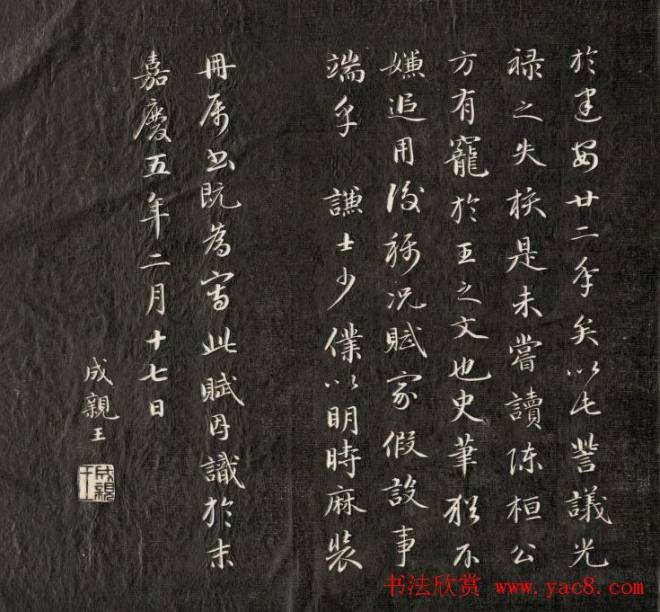 於建安廿二年矣以此訾議光
祿之失核是未嘗讀陳桓公
方有寵於王之文也史筆猶不
嫌追用後稱況賦家假設事
端乎 謙士少僕以明時麻裝
冊屬書既為寫此賦因識於末
嘉慶五年二月十七日
成親王
书法欣赏 www.yac8.com